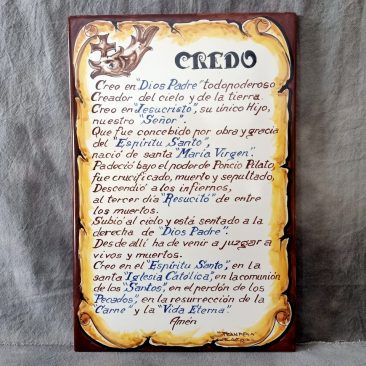 CREDO
Creo en "Dios Padre" todopoderoso
Creador del cielo y de la tierra.
Creo en "Jesucristo", su único Hijo,
nuestro "Señor".
Que fue concebido por obra y gracia
del "Espíritu Santo",
nació de santa "María Virgen".
Padeció bajo el poder de Poncio Pilato,
fue crucificado, muerto y sepultado,
Descendió a los infiernos,
al tercer día "Resucitó" de entre
los muertos.
Subió al cielo y está sentado a la
derecha de "Dios Padre".
Des de allí ha de venir a juzgar a
vivos y muertos.
Creo en el "Espíritu Santo", en la
santa "Iglesia Católica", en la comunión
de los "Santos", en el perdón de los
"Pecados", en la resurrección de la
"Carne" y la "Vida Eterna".
Amén